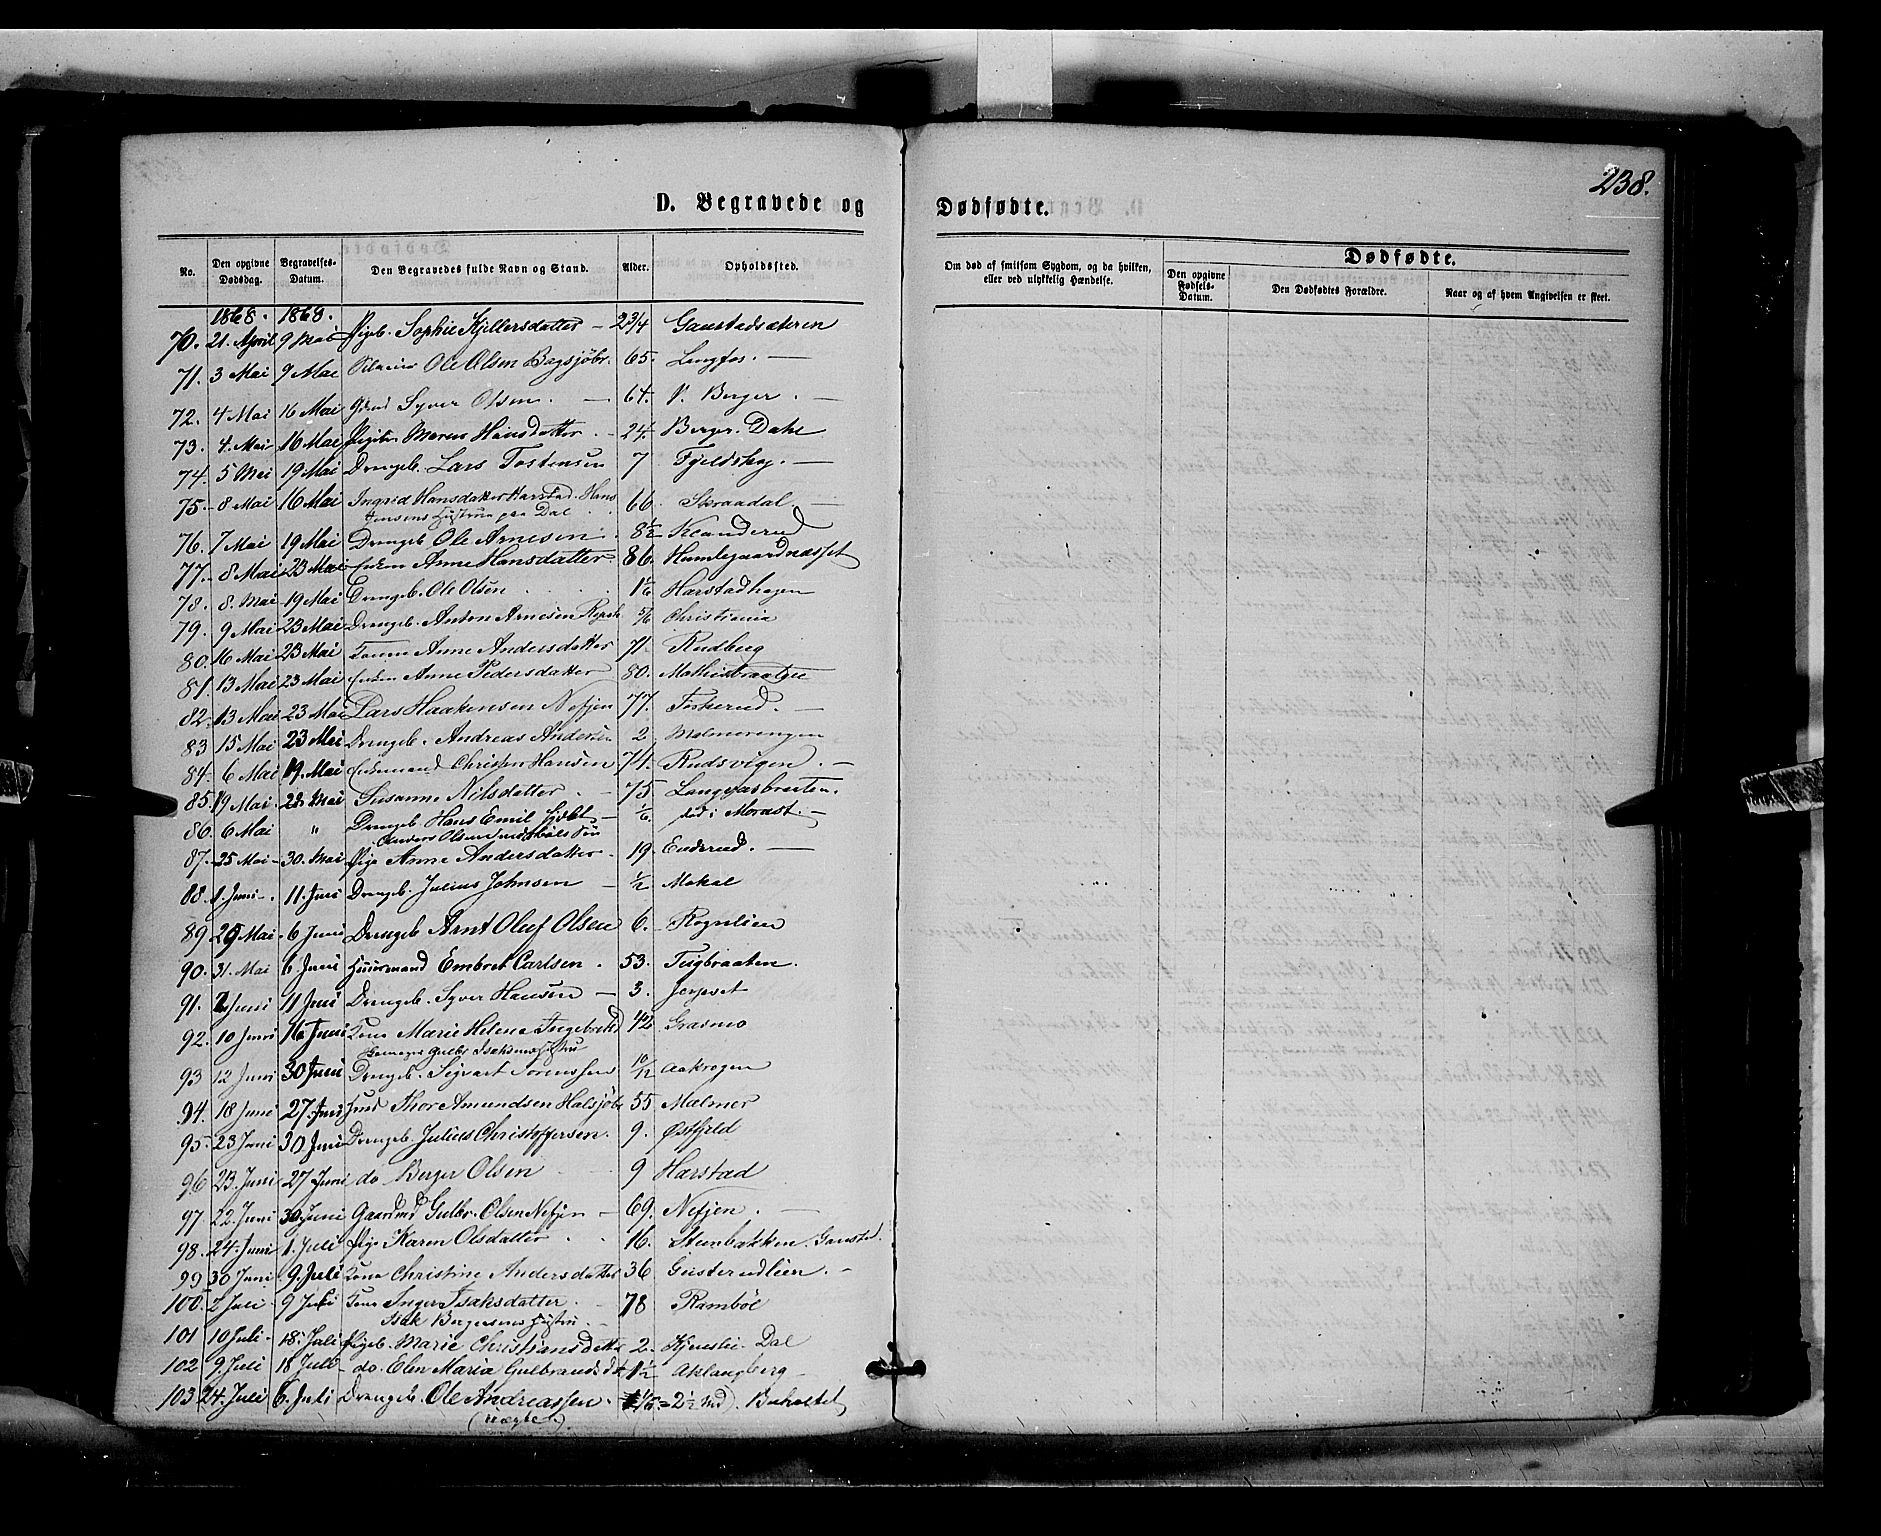 238.
D. Begravede og Dødfødte.
No. Den opgivne Dødsdag. Begravelses-Datum. Den Begravedes fulde Navn og Stand. Alder. Opholdssted.
Om død af smitsom Sygdom, og da hvilken, eller ved ulykkelig Hændelse.
Dødfødte.
Den opgivne Fødsels-Datum. Den Dødfødtes Forældre. Naar og af hvem Angivelsen er skeet.
1868. 1868.
70. 21. April 9 Mai Pigeb. Sophie Kjellersdatter 2 3/4 Gaustadsæteren
71. 3 Mai 9 Mai Ole Olsen Bagsjøbr. 65. Langfos.
72. 4 Mai 16 Mai Syver Olsen. 64. V. Berger.
73. 4. Mai 16 Mai Maren Hansdatter 24. Berger. Dahl
74. 5 Mai 19 Mai Drengeb. Lars Tostensen 7 Fjeldskog.
75. 8 Mai 16 Mai Ingrid Hansdatter Harstad. Hans 66. Skraadal.
Jensens Hustru paa Dal
76. 7 Mai 19 Mai Drengeb Ole Arnesen 8 1/2 Klanderud
77. 8 Mai 23 Mai Enken Anne Hansdatter 86. Humlegaardnæsset
78. 8. Mai 19 Mai Drengeb. Ole Olsen 1 1/6 Harstadhagen
79. 9 Mai 23 Mai Drengeb. Anton Arnesen 5/6 Christiania
80. 16 Mai 23 Mai Anne Andersdatter 71. Rudberg
81. 13 Mai 23 Mai Enken Anne Pedersdatter 80.
82. 13 Mai 23 Mai Lars Haakensen Nefjen 77. Foskerud.
83 15 Mai 23 Mai Drengeb. Andreas Andersen 2 Malmerengen
84. 6 Mai 19. Mai Christen Hansen 74. Rudsvigen.
85. 19 Mai 28 Mai Susanne Nilsdatter 75 Langaasbraaten.
86. 6 Mai " Drengeb Hans Emil 1/6. død i Morast.
Anders Olsen Søn
87. 25 Mai 30. Mai Pige Anne Andersdatter. 19. Enderud.
88. 1. Juni. 11. Juni Drengeb. Julius Johnsen 1/2 Mokal
89 29 Mai 6 Juni Drengeb Arnt Oluf Olsen 6. Rognlien
90. 31. Mai 6 Juni Huusmand Embret Carlsen. 53. Tugbraaten.
91. 2 Juni 11 Juni Drengeb. Syver Hansen 3. Jerpset
92. 10 Juni 16 Juni Kone Marie Helene Ingebretsd 42 Grasmo
Gulbr Isaksens Hustru
93 12 Juni 30 Juni Drengeb. Sigvart Sørenssen 10/12 Aakrogen
94. 18 Juni 27. Juni Thor Amundsen Halsjøbr 55 Malmer
95. 23 Juni 30 Juni Drengeb. Julius Christoffersen. 9. Østfjeld
96 23. Juni 27 Juni do Berger Olsen 9 Harstad
97 22. Juni 30 Juni Gaardmd Gulbr. Olsen Nefjen 69. Nefjen.
98. 24. Juni 1. Juli Pige Karen Olsdatter 16. Stenbakken. Gausted.
99 30 Juni 9. Juli Kone Christine Andersdatter 36 Gusterudlien.
100. 2 Juli 9 Juli Kone Inger Isaksdatter. 78 Rambøl
Isak Bergersens Hustru.
101 10 Juli. 18. Juli Pigeb. Marie Christiansdatt 2. Dal
102 9 Juli 18 Juli do. Elen Maria Gulbrandsdt 1 1/2 Aklangberg
103 24. Juli 6. Juli Drengeb. Ole Andreassen. = 2 1/2 Md).
(uægte).